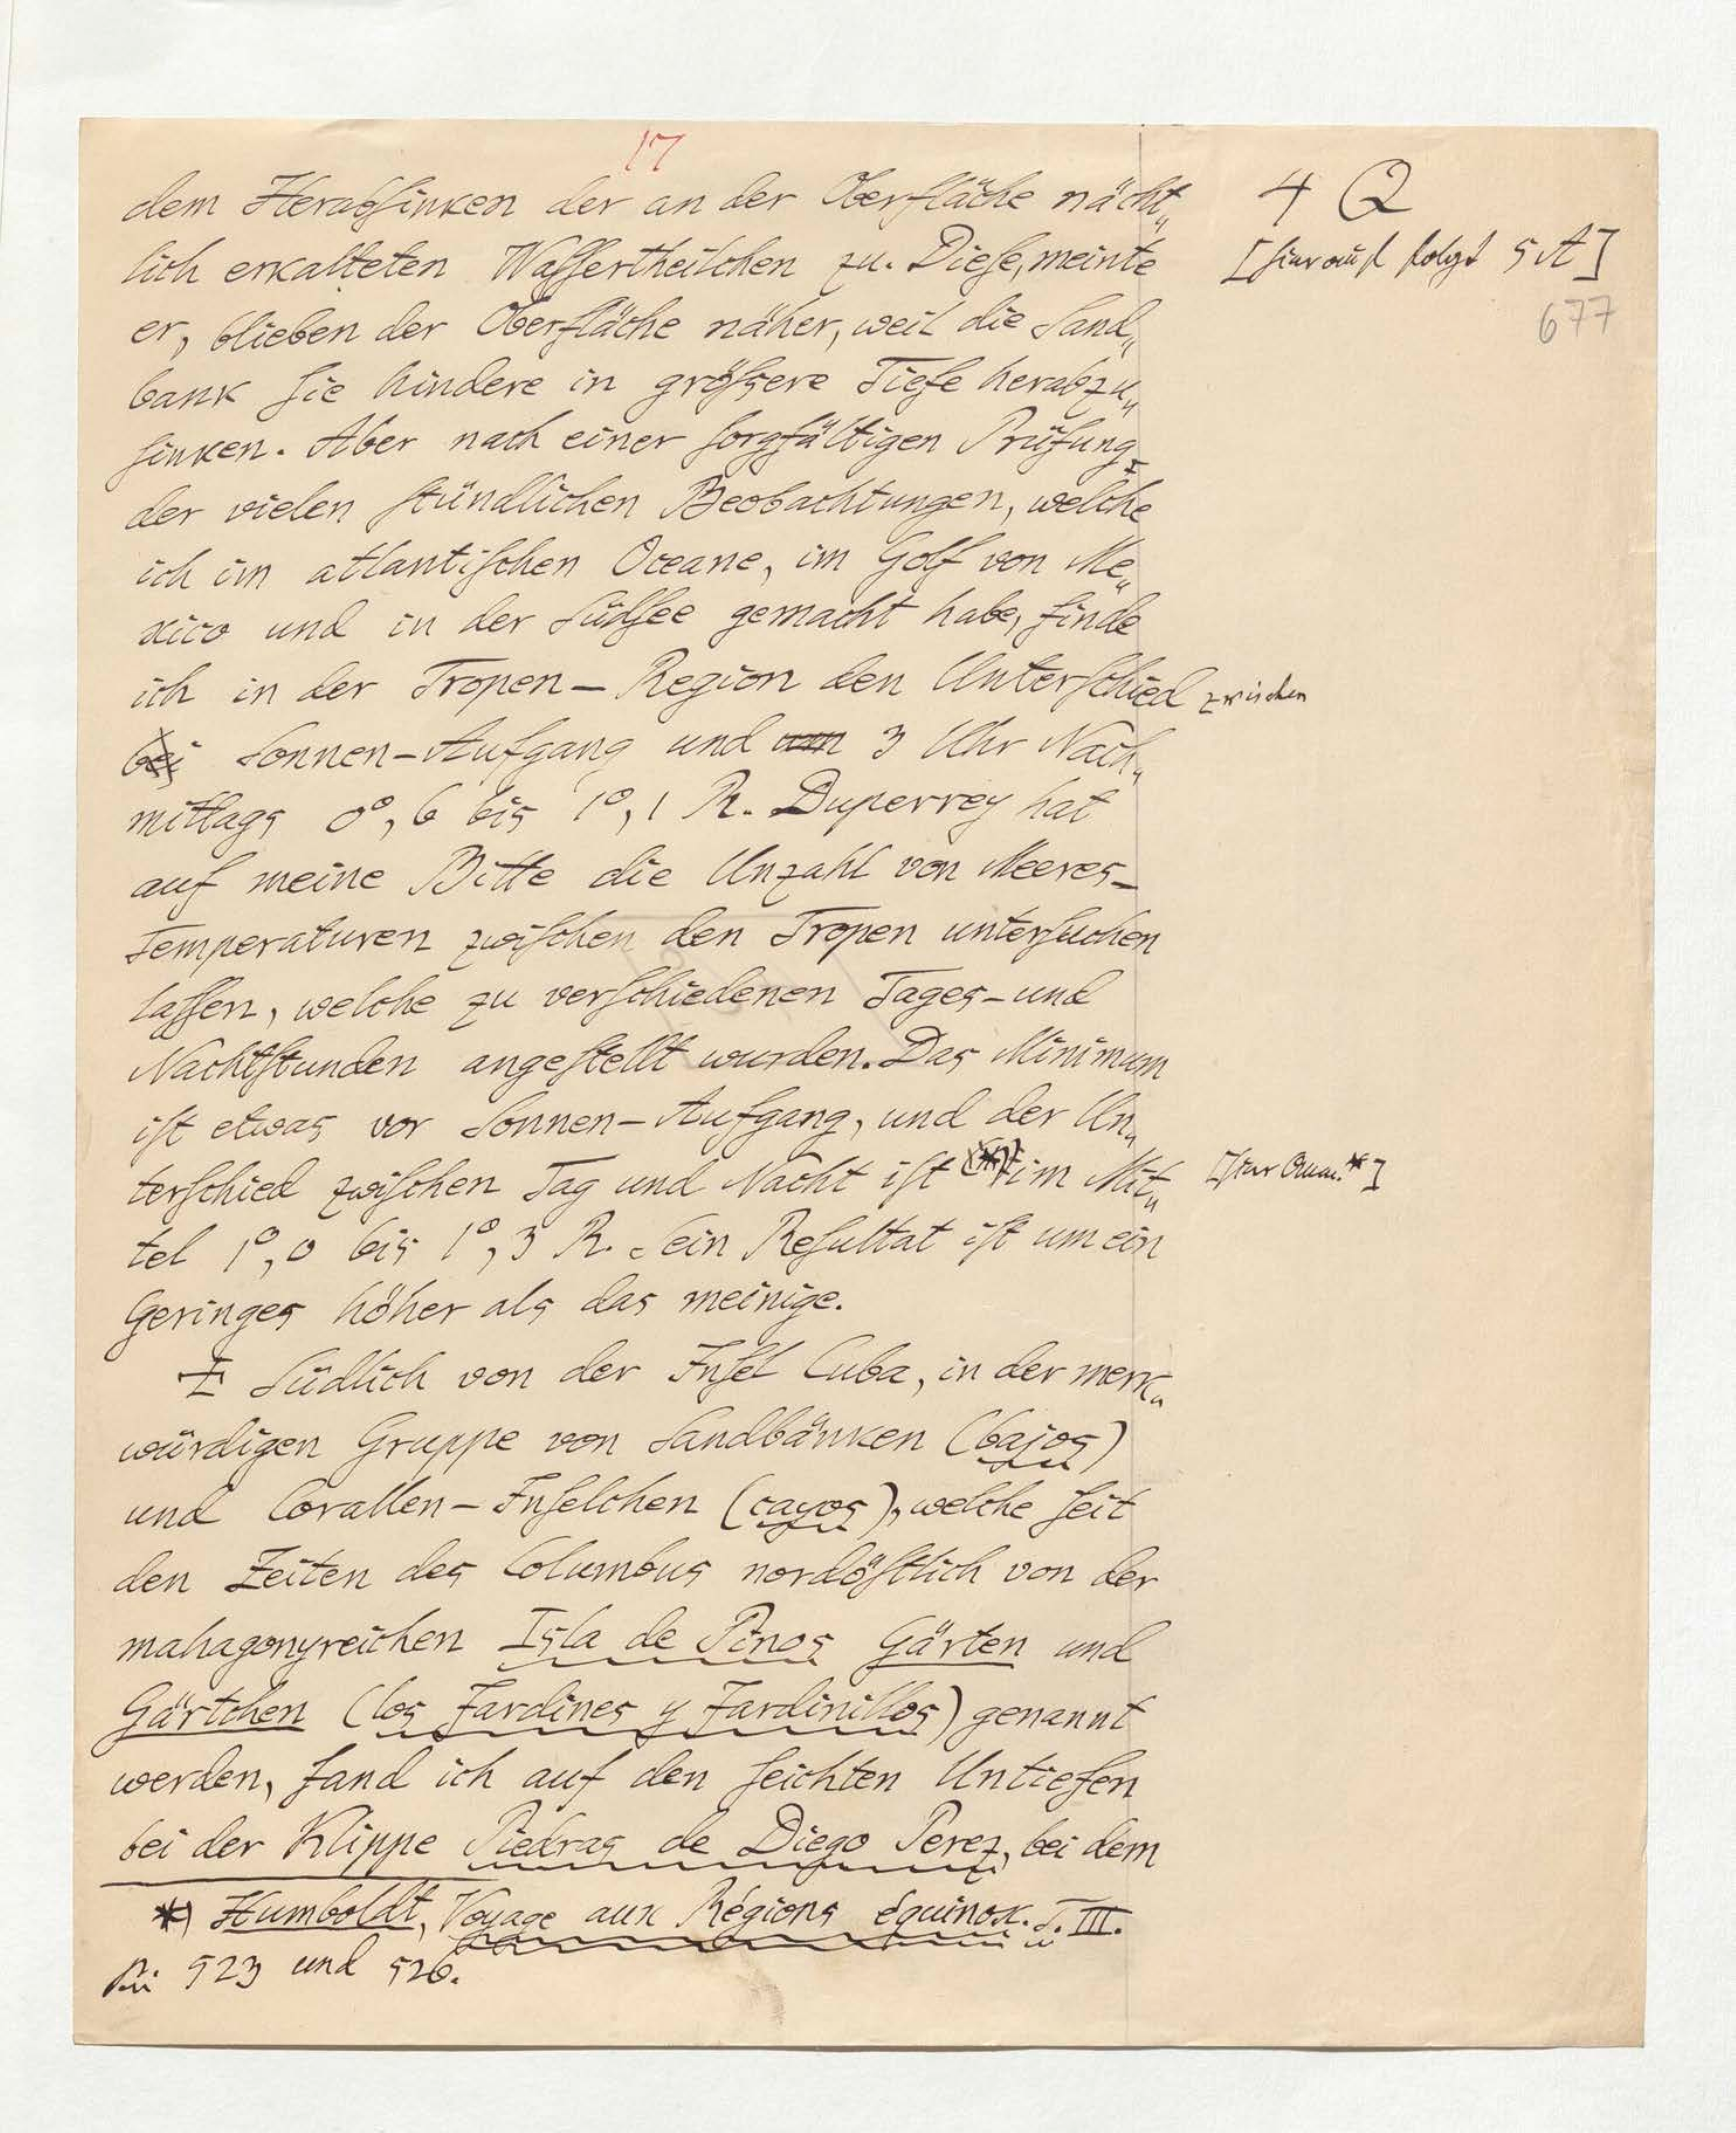 17
4 Q
[hierauf folgt 5 A]
677
dem Herabſinken der an der Oberfläche nächt„
lich erkalteten Waſſertheilchen zu. Dieſe, meinte
er, blieben der Oberfläche näher, weil die Sand„
bank ſie hindere in gröſsere Tiefe herabzu„
ſinken. Aber nach einer ſorgfältigen Prüfung
der vielen ſtündlichen Beobachtungen, welche
ich im atlantiſchen Oceane, im Golf von Me„
xico und in der Südſee gemacht habe, finde
ich in der Tropen-Region den Unterſchied zwischen
bei Sonnen-Aufgang und um 3 Uhr Nach„
mittags 0°,6 bis 1°,1 R. Duperrey hat
auf meine Bitte die Unzahl von Meeres-
Temperaturen zwiſchen den Tropen unterſuchen
laſſen, welche zu verſchiedenen Tages- und
Nachtſtunden angeſtellt wurden. Das Minimum
iſt etwas vor Sonnen-Aufgang, und der Un„
terſchied zwiſchen Tag und Nacht iſt (*) im Mit„ [hier Anm.*]
tel 1°,0 bis 1°,3 R. Sein Reſultat iſt um ein
Geringes höher als das meinige.
Südlich von der Inſel Cuba, in der merk„
würdigen Gruppe von Sandbänken (bajos)
und Corallen-Inſelchen (cayos), welche ſeit
den Zeiten des Columbus nordöſtlich von der
mahagonyreichen Isla de Pinos Gärten und
Gärtchen (los Jardines y Jardinillos) genannt
werden, fand ich auf den ſeichten Untiefen
bei der Klippe Piedras de Diego Perez, bei dem
*) Humboldt, Voyage aux Régions équinox. T. III.
523 und 526.